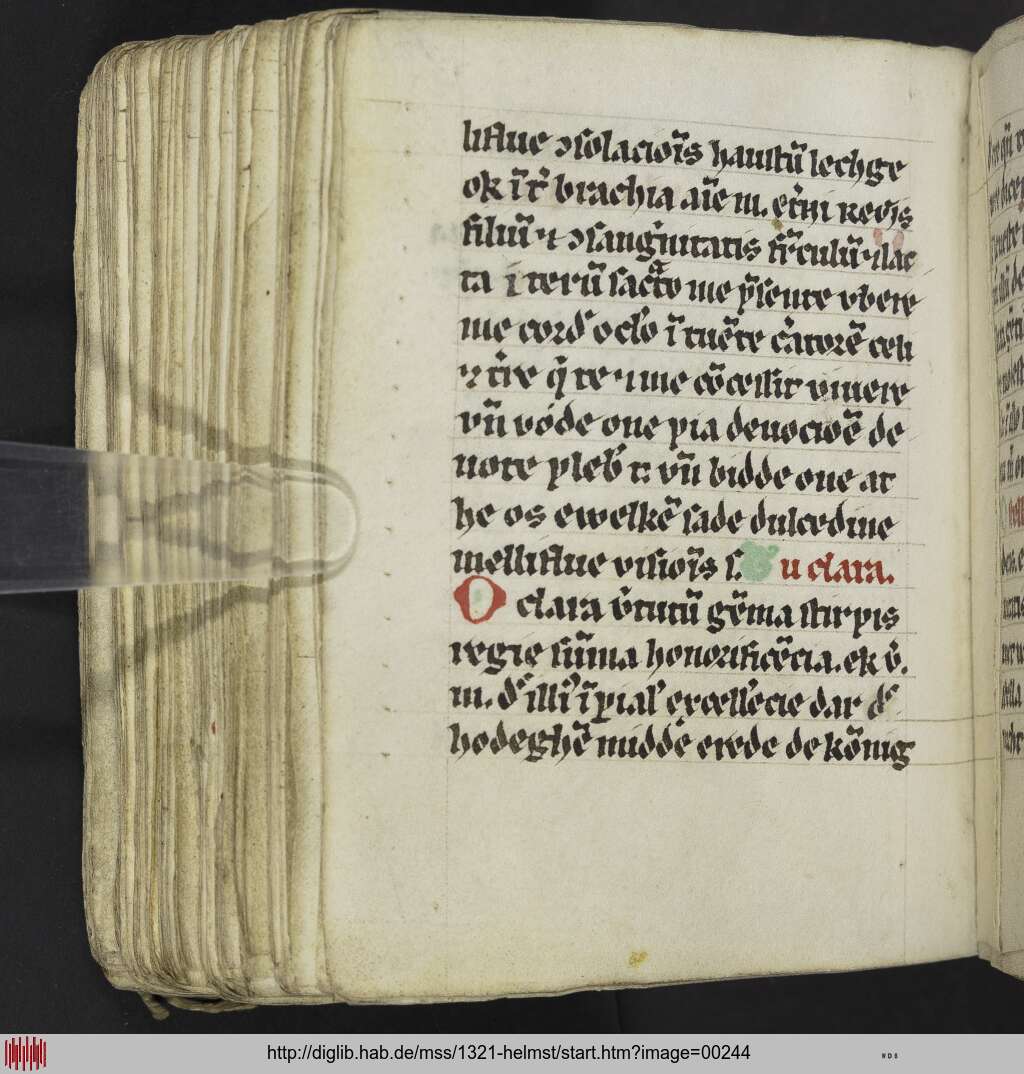 liflue ↄsolacioīs haustū lechge
ok ī t᷑ brachia aīe m. et᷑ni regis
filiū ⁊ ↄsanguītatis fr̄culū ⁊ lac
ta iterū sacto me p̄sente vbere
me cord᷑ oclō ītuēte c᷑atorē celi
⁊ t᷑re q̄ te ⁊ me cōcessit viuere
vn̄ vode one pia deuocioē de
uote pleb᷑ t: vn̄ bidde one at
he os ewelkē sade dulcedine
melliflue visioīs s. u clara.
O clara v᷑tutū gēma stirpis
regie sūma honorificēcia. ek v᷑.
m. d᷑ illi᷑ īpial᷑ excellēcie dat d᷑
hodeghē midde erede de kōnig
http://diglib.hab.de/mss/1321-helmst/start.htm?image=00244